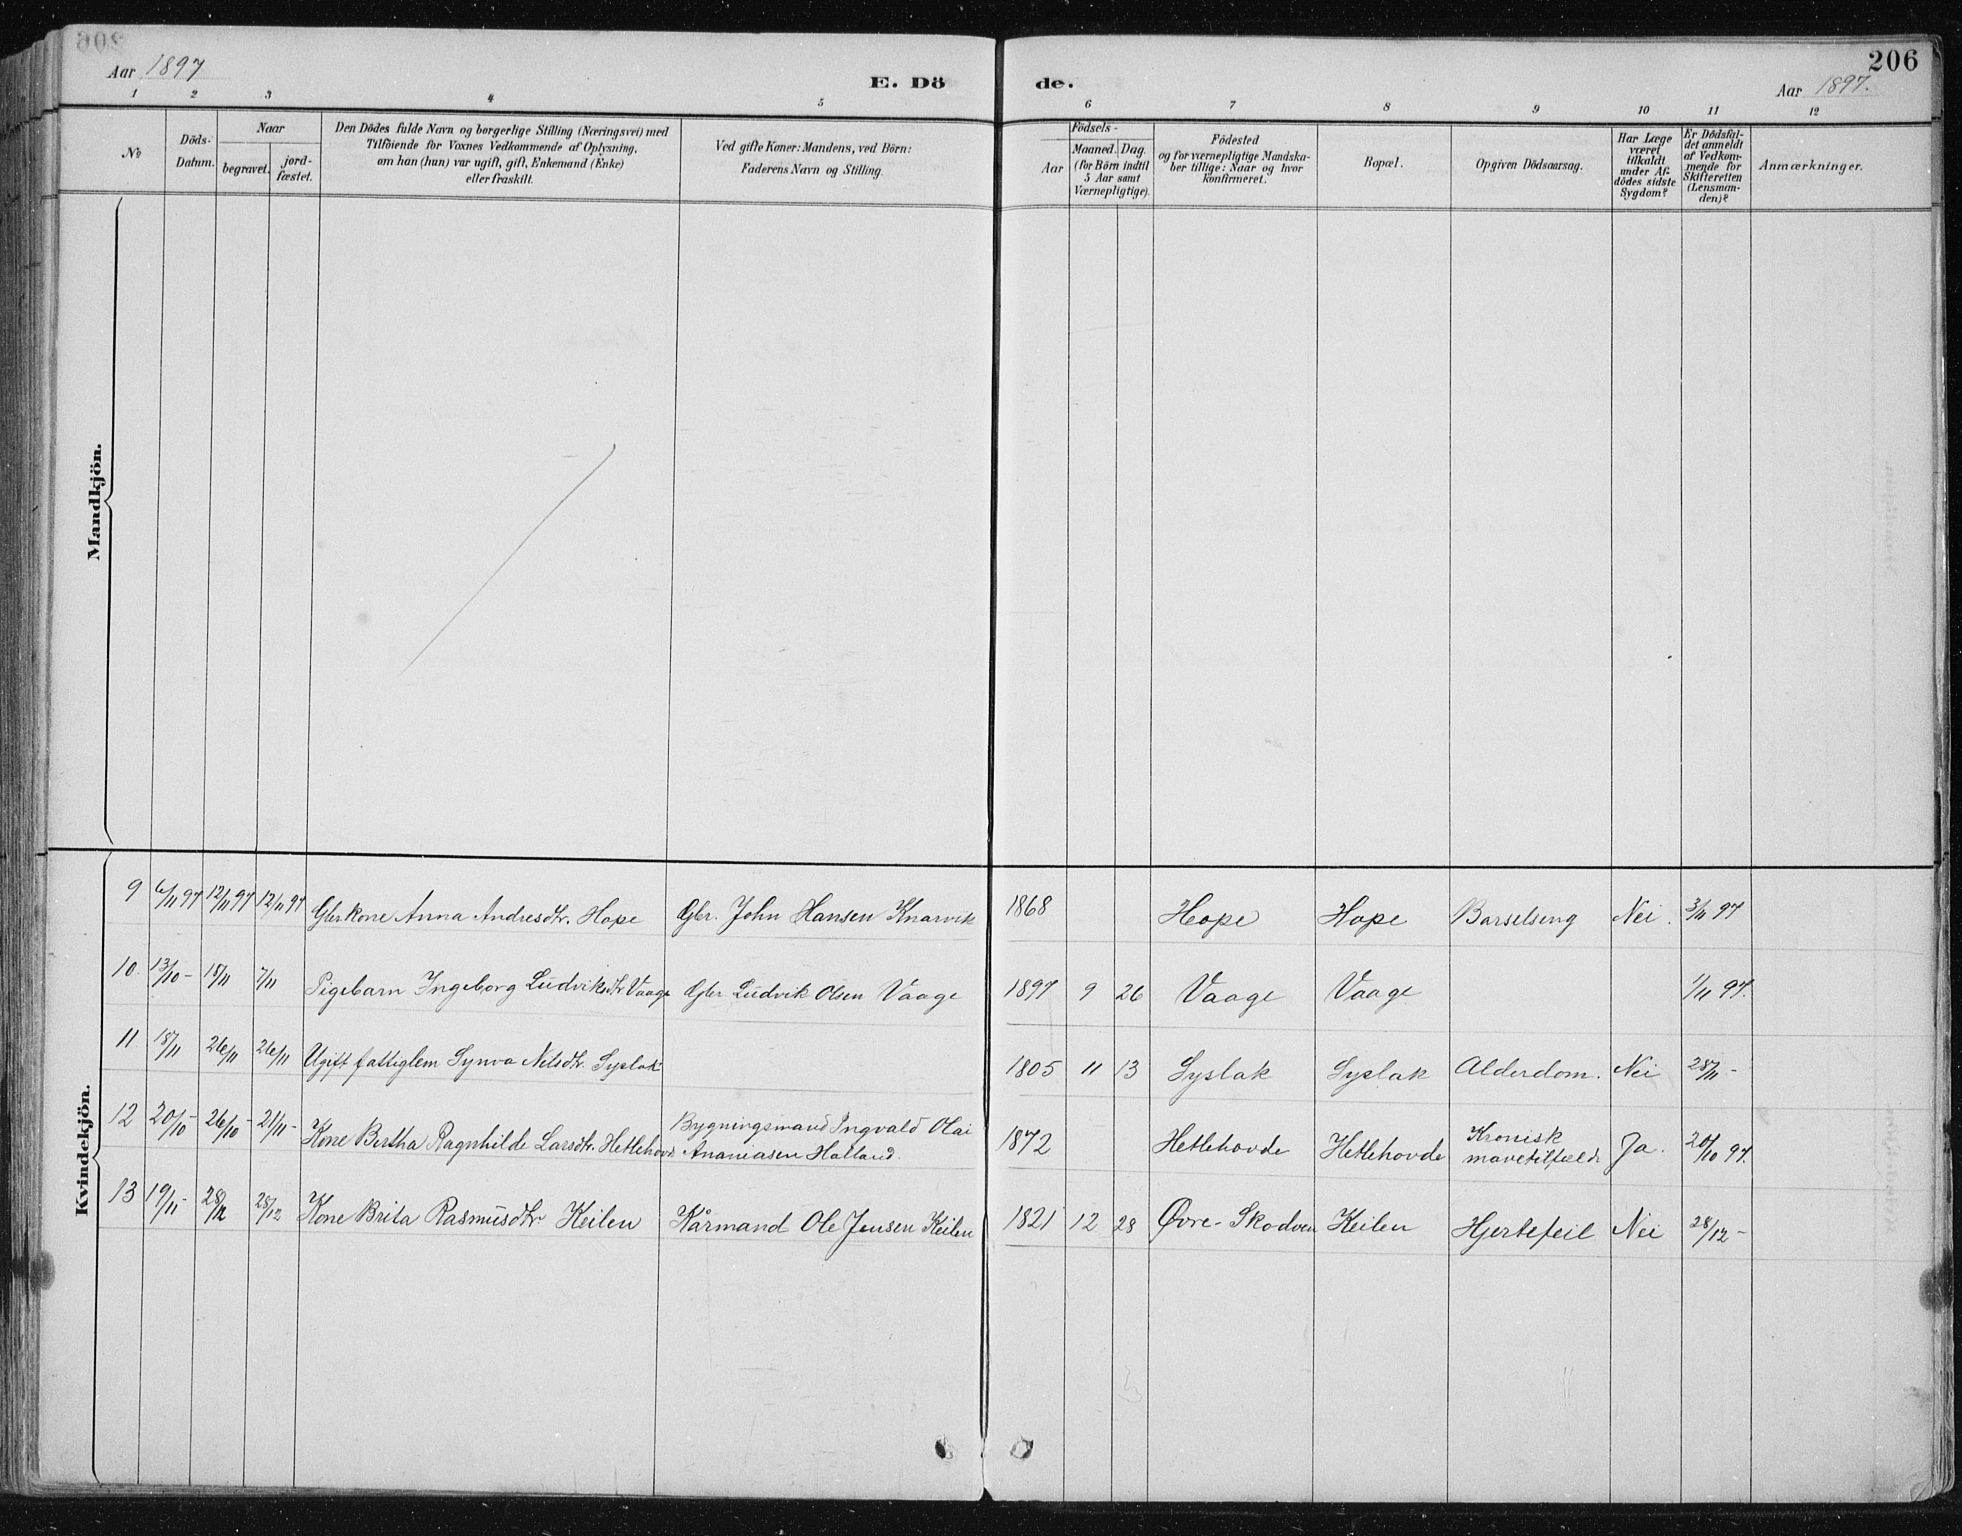 206
Aar 1897
E. Dö
de.
Aar 1897.
1 2 3 4 5 6 7 8 9 10 11 12
№
Döds-
Datum.
Naar
begravet.
jord-
fæstet.
Den Dödes fulde Navn og borgerlige Stilling (Næringsvei) med
Tilföiende for Voxnes Vedkommende af Oplysning,
om han (hun) var ugift, gift, Enkemand (Enke)
eller fraskilt.
Ved gifte Koner: Mandens, ved Börn:
Faderens Navn og Stilling.
Födsels-
Aar
Maaned. Dag.
(for Börn indtil
5 Aar samt
Værnepligtige).
Födested
og for værnepligtige Mandska-
ber tillige: Naar og hvor
konfirmeret.
Bopæl.
Opgiven Dödsaarsag.
Har Læge
været
tilkaldt
under Af-
dödes sidste
Sygdom?
Er Dödsfal-
det anmeldt
af Vedkom-
mende for
Skifteretten
(Lensman-
den)?
Anmærkninger.
Mandkjön.
Kvindekjön.
9 6/11 97 12/11 97 12/11 97 Gbrkone Anna Andresdtr. Hope Gbr. John Hansen Knarvik 1868 Hope Hope Barselseng Nei. 3/11 97
10 13/10 - 18/11 7/11 Pigebarn Ingeborg Ludviksdtr Vaage Gbr Ludvik Olsen Vaage 1897 9 26 Vaage Vaage 1/11 97.
11 18/11 26/11 26/11 Ugift fattiglem Synva Nilsdtr. Syslak 1805 11 13 Syslak Syslak Alderdom. Nei 28/11 -
12 20/10 - 26/10 - 21/11 - Kone Bertha Ragnhilde Larsdtr. Hetlehovd Bygningsmand Ingvald Olai
Ananiasen Halland. 1872 Hetlehovde Hetlehovde Kronisk
mavetilfælde Ja. 20/10 97.
13 19/11 - 28/12 28/12 Kone Brita Rasmusdtr Keilen Kårmand Ole Jensen Keilen 1821 12 28 Øvre-Skodven Keilen Hjertefeil Nei 28/12 -